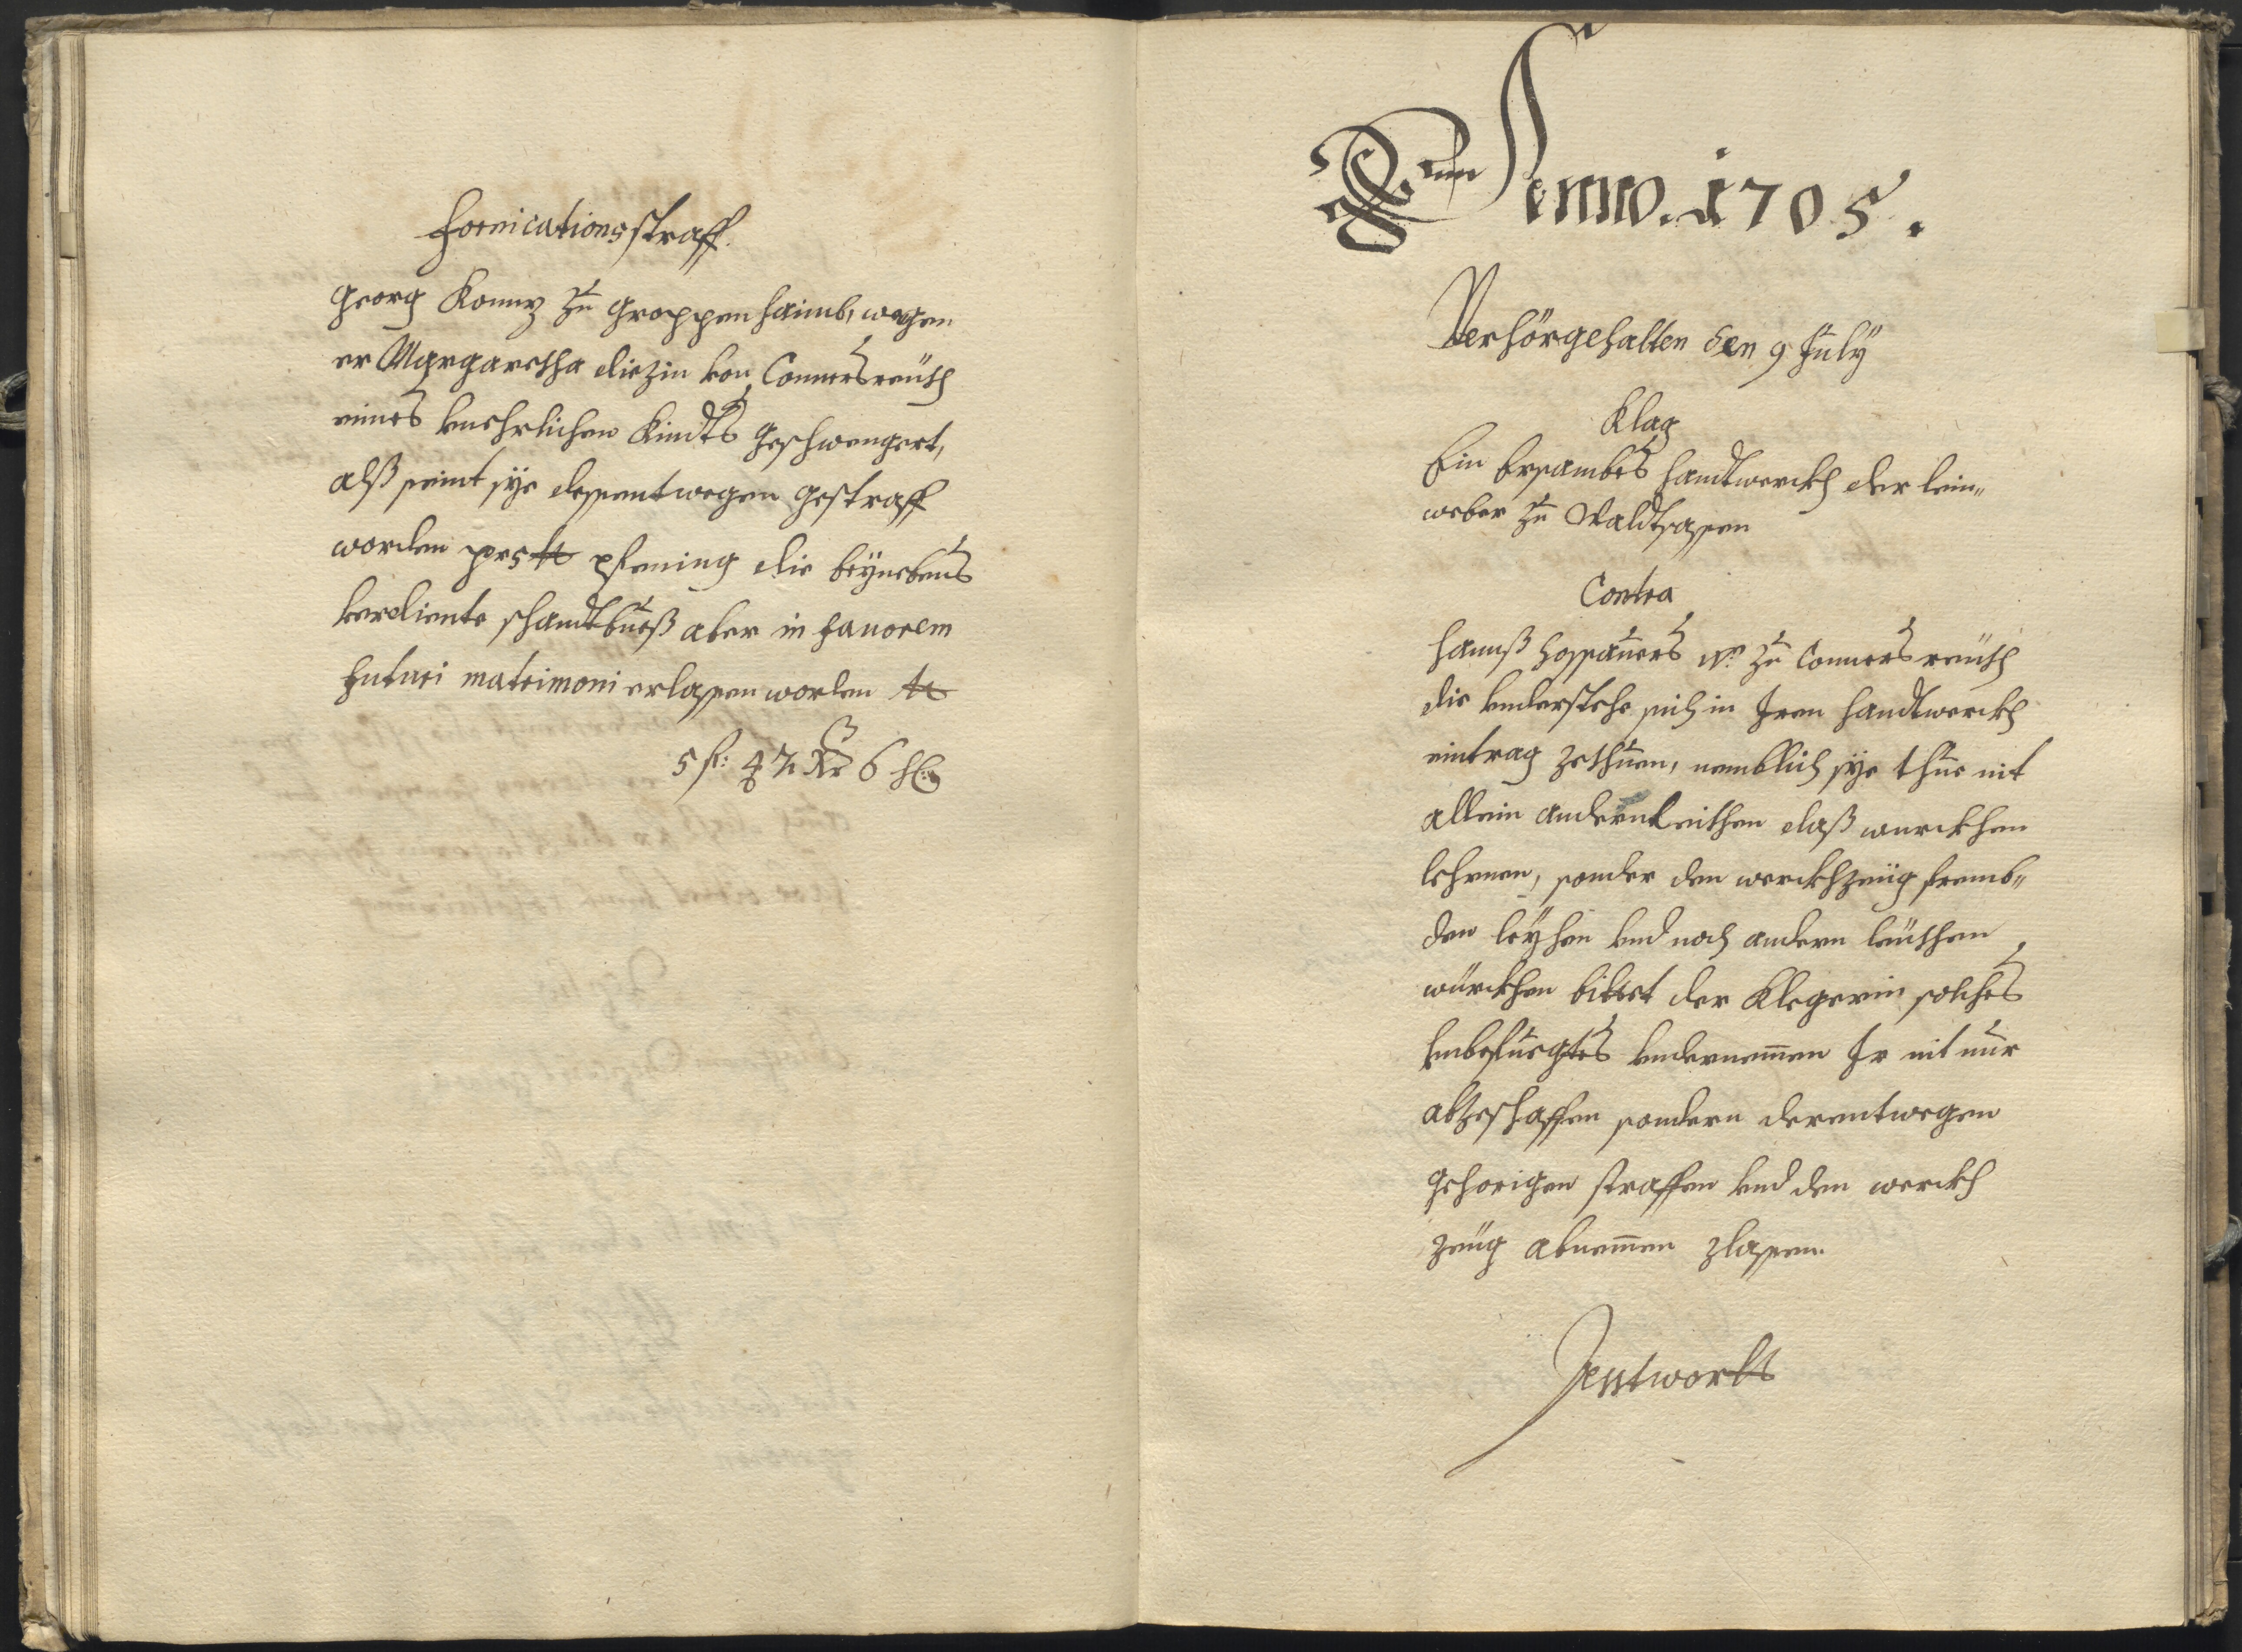 Fornicationsstraff.
Georg Konnz zu Groppenhaimb, wegen
er Margaretha diezin von Connersreuth
eines vnehrlichen Kindts geschwengert,
alß seint sye dessentwegen gestraff
worden per 5 ℔ pfening die beynebens
verdiente schandtbueß aber in fauorem
futuri matrimoni erlassen worden ℔
5 fl: 42 Kr 6 hl:
Anno. 1705.
Verhörgehalten den 9 July
Klag
Ein Ersambes handtwerckh der lein„
weber zu Waldtsassen
Contra
Hannß Hossauers W: zu Conners reuth
die vnderstehe sich in Iren handtwerckh
eintrag zethuen, nemblich sye thue nit
allein andern leithen daß wurckhen
lehrnen, sonder den werckhzeüg fremb„
den leyhen vnd noch andern leüthen
würckhen bittet der Klegerin solches
vnbefuegtes vndernemmen Ir nit nur
abzeschaffen sondern derentwegen
gehorigen straffen vnd den werckh
zeüg abnemmen zlassen.
Antwortt